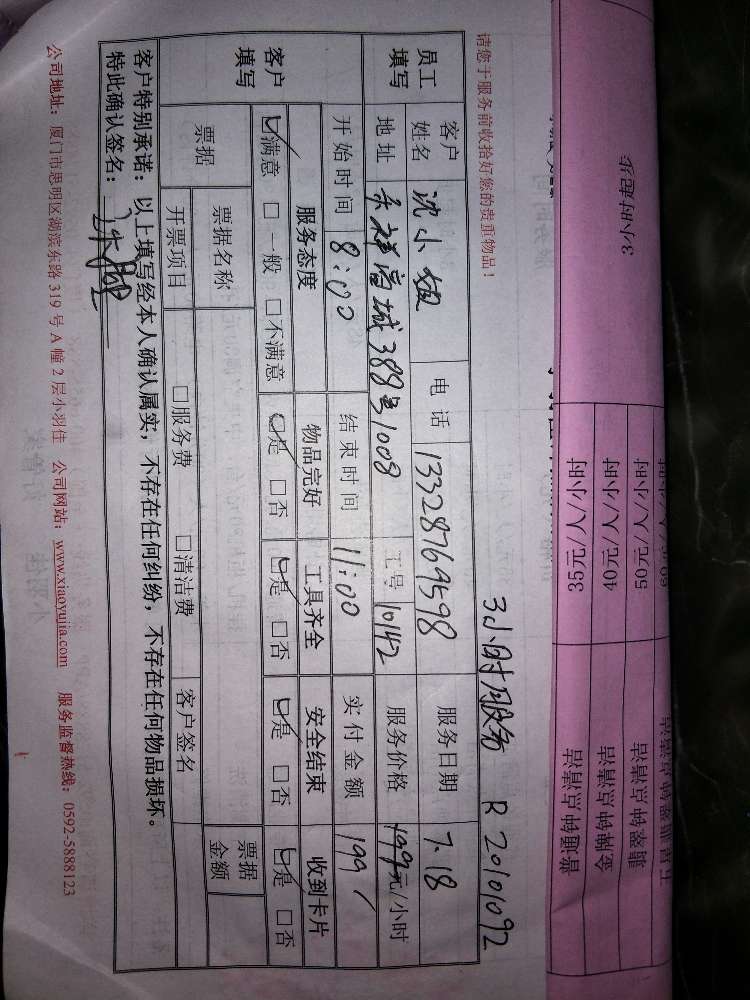 3小时服务 R 20101092
请您于服务前收拾好您的贵重物品！
员工填写 客户姓名 沈小姐 电话 13328769598 服务日期 7.18
地址 禾祥富城388号1008 工号 10142 服务价格 199元/小时
开始时间 8:00 结束时间 11:00 实付金额 199
客户填写 服务态度 物品完好 工具齐全 安全结束 收到卡片
☑满意 □一般 □不满意 ☑是 □否 ☑是 □否 ☑是 □否 ☑是 □否
票据 票据名称 票据金额
开票项目 □服务费 □清洁费 客户签名
客户特别承诺：以上填写经本人确认属实，不存在任何纠纷，不存在任何物品损坏。
特此确认签名：
公司地址：厦门市思明区湖滨东路 319 号 A 幢 2 层小羽佳 公司网站：www.xiaoyujia.com 服务监督热线：0592-5888123
普通钟点清洁 35元/人/小时
金牌钟点清洁 40元/人/小时
钟点清洁 50元/人/小时
3小时